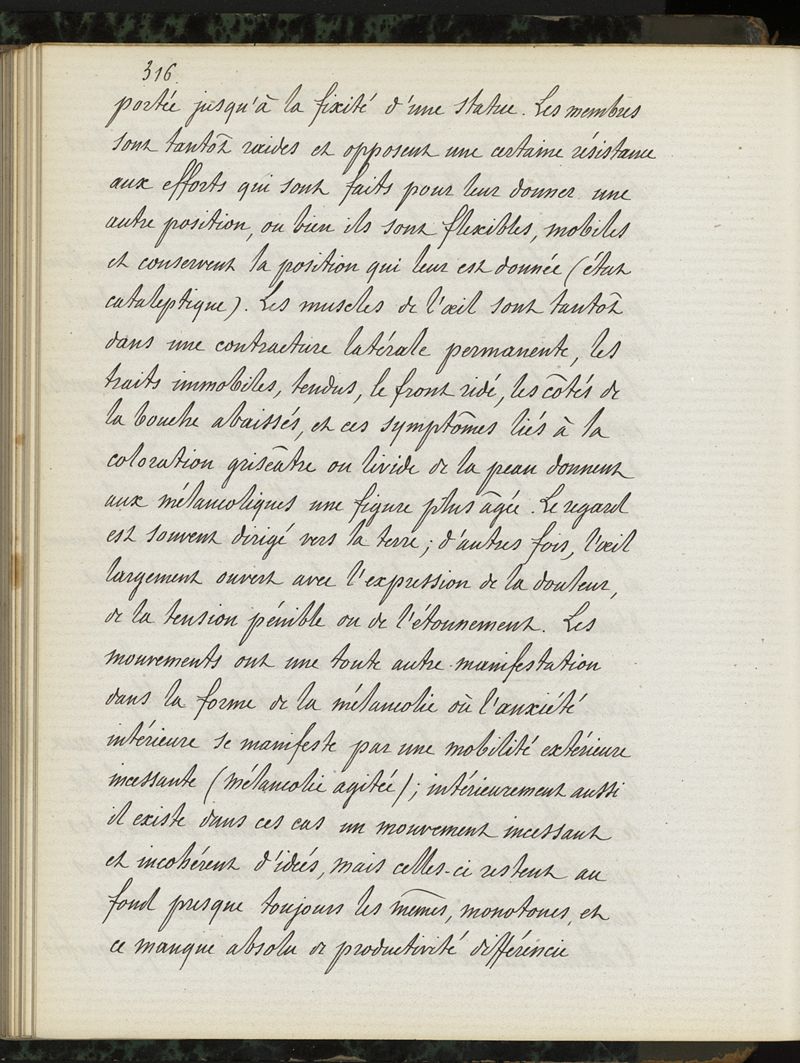 316.
portée jusqu'à la fixité d'une statue. Les membres
sont tantôt raides et opposent une certaine résistance
aux efforts qui sont faits pour leur donner une
autre position, ou bien ils sont flexibles, mobiles
et conservent la position qui leur est donnée (état
cataleptique). Les muscles de l'œil sont tantôt
dans une contracture latérale permanente, les
traits immobiles, tendus, le front ridé, les côtés de
la bouche abaissés, et ces symptômes liés à la
coloration grisâtre ou livide de la peau donnent
aux mélancoliques une figure plus âgée. Le regard
est souvent dirigé vers la terre; d'autres fois, l'œil
largement ouvert avec l'expression de la douleur,
de la tension pénible ou de l'étonnement. Les
mouvements ont une toute autre manifestation
dans la forme de la mélancolie où l'anxiété
intérieure se manifeste par une mobilité extérieure
incessante (mélancolie agitée); intérieurement aussi
il existe dans ces cas un mouvement incessant
et incohérent d'idées, mais celles-ci restent au
fond presque toujours les mêmes, monotones, et
ce manque absolu de productivité différencie